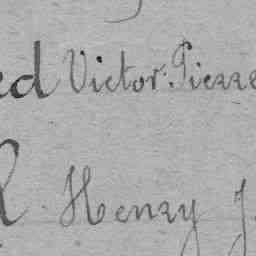 ed Victor. Pierre
. Henry J.